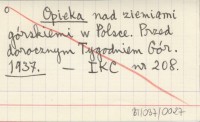 Opieka nad ziemiami
górskiemi w Polsce. Przed
dorocznym Tygodniem Gór.
1937. — IKC nr 208.
811/037/0027